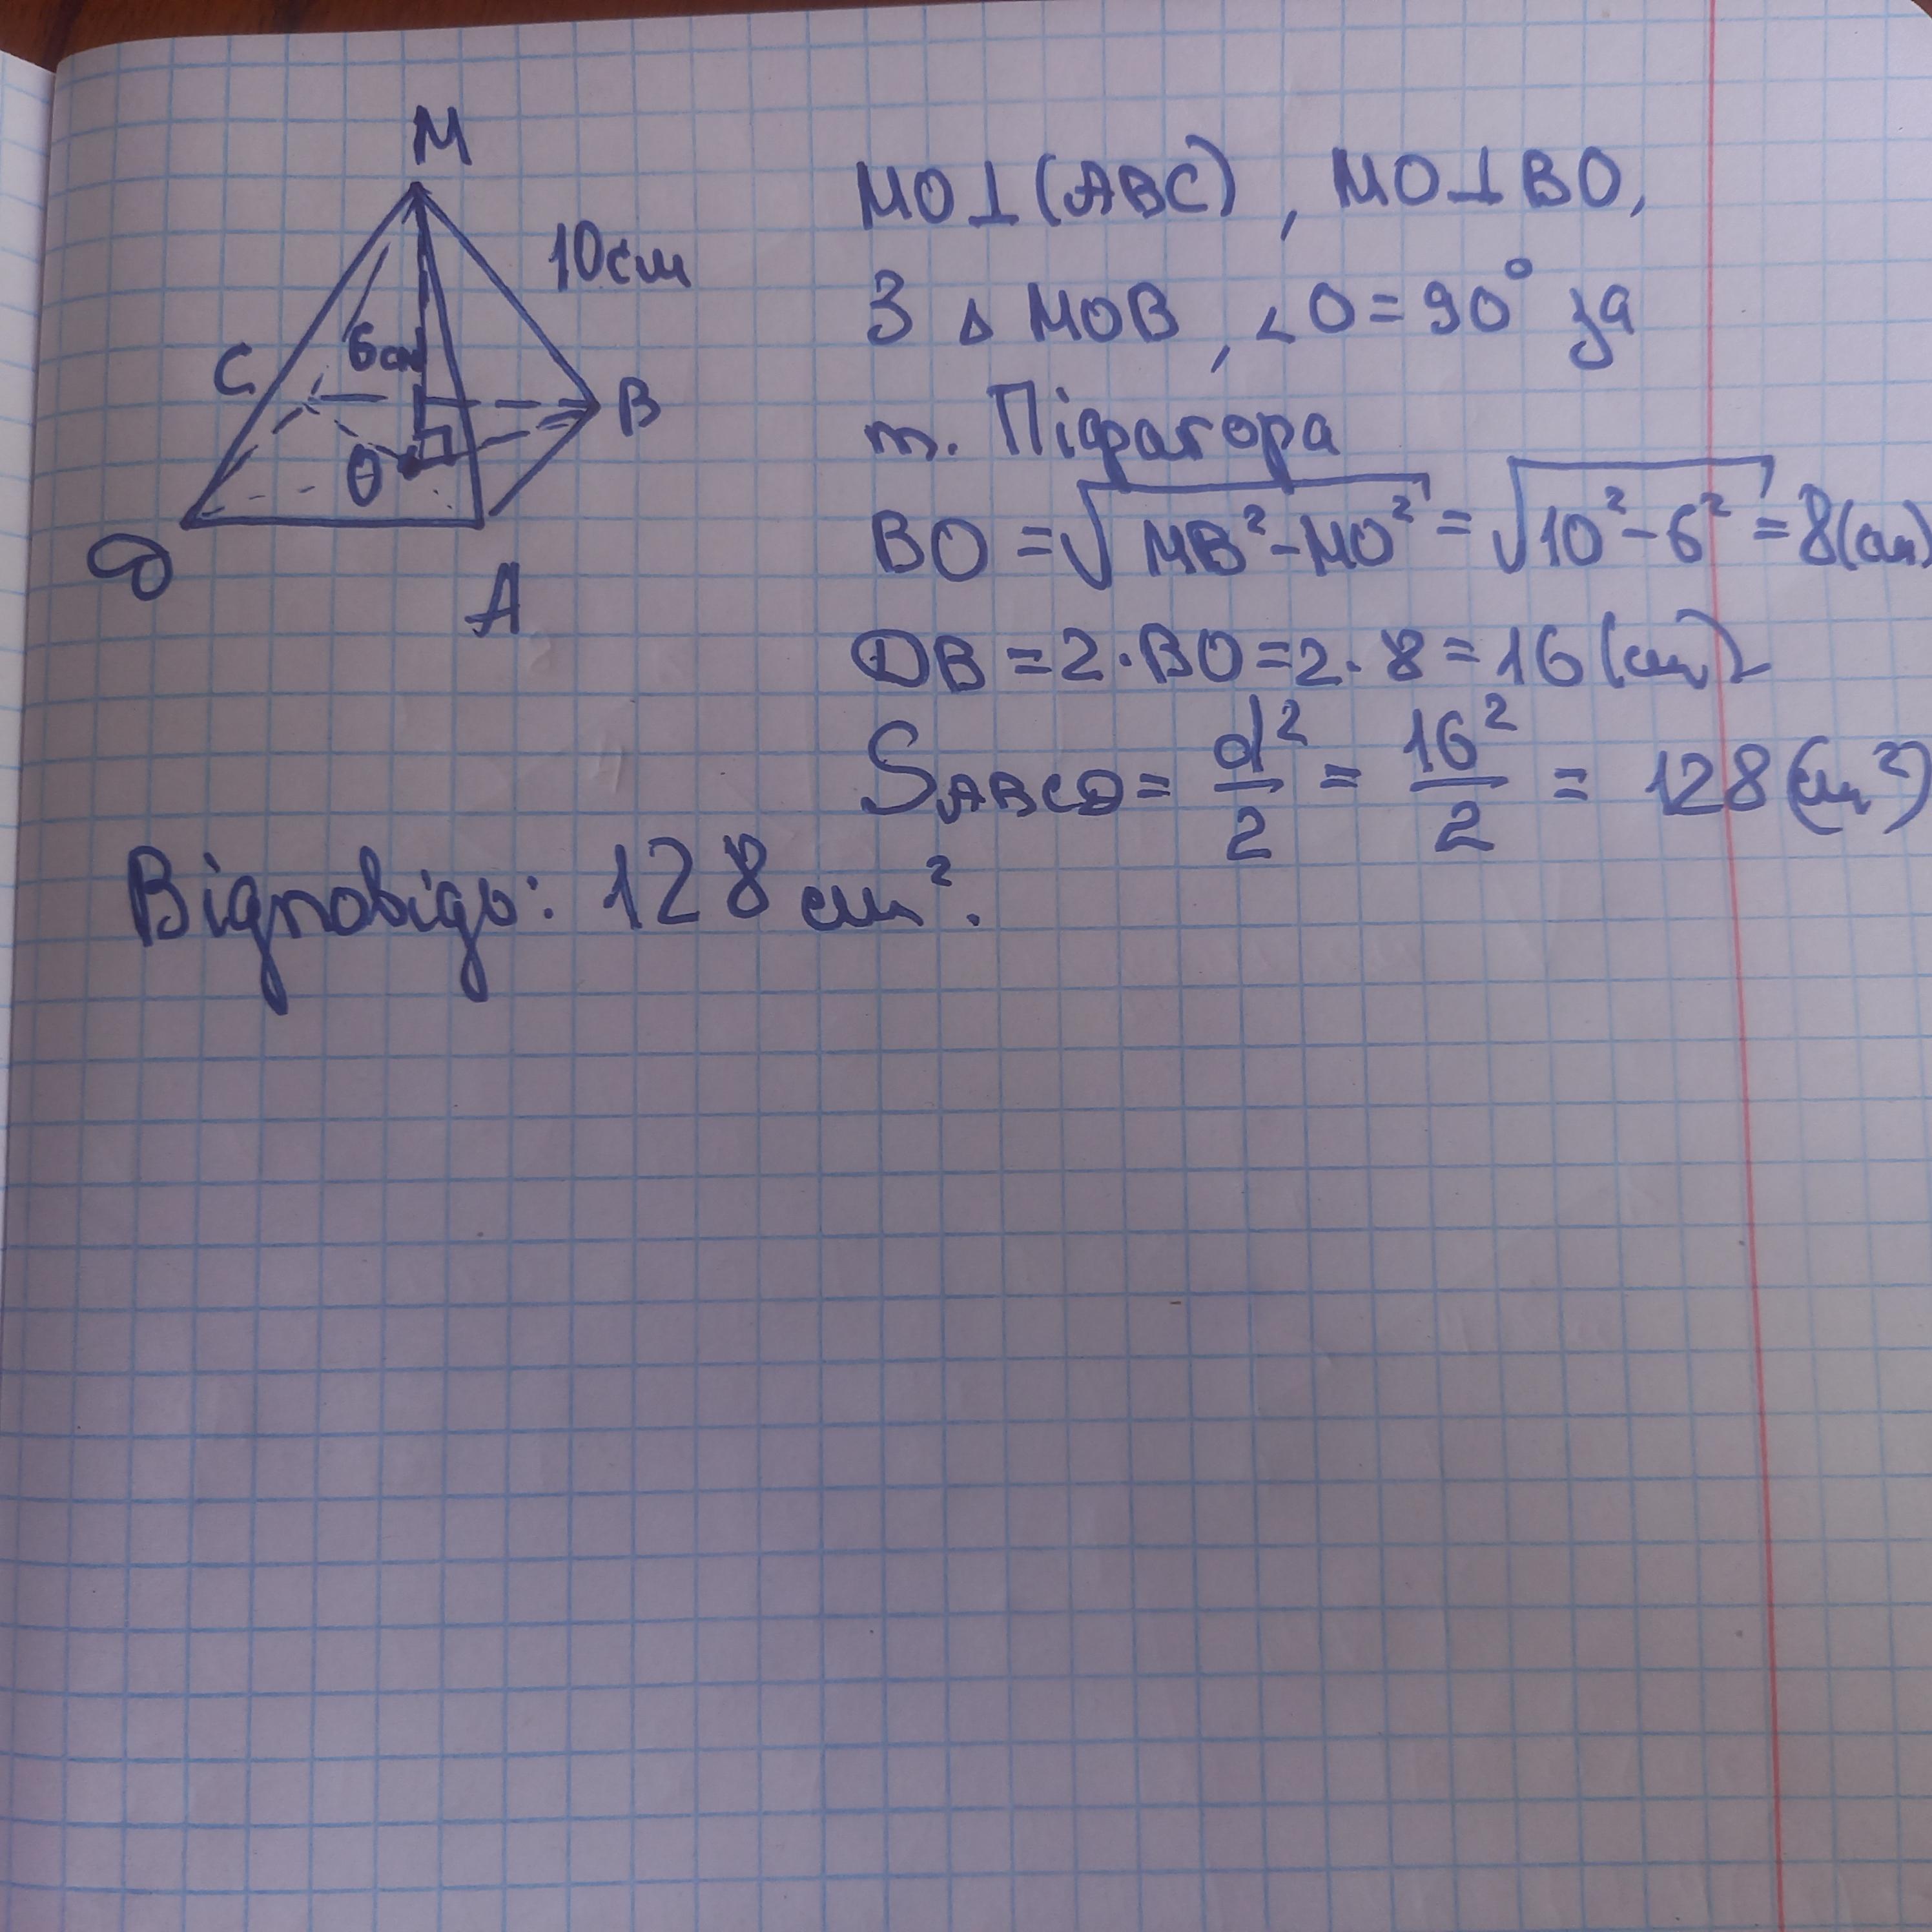 M
10см
6см
C
B
O
D
A
MO⊥(ABC), MO⊥BO,
З △ MOB, ∠O=90° за
т. Піфагора
BO = √MB²-MO² = √10²-6² = 8(см)
DB = 2·BO=2·8=16(см)
S ABCD = d²/2 = 16²/2 = 128(см²)
Відповідь: 128 см².